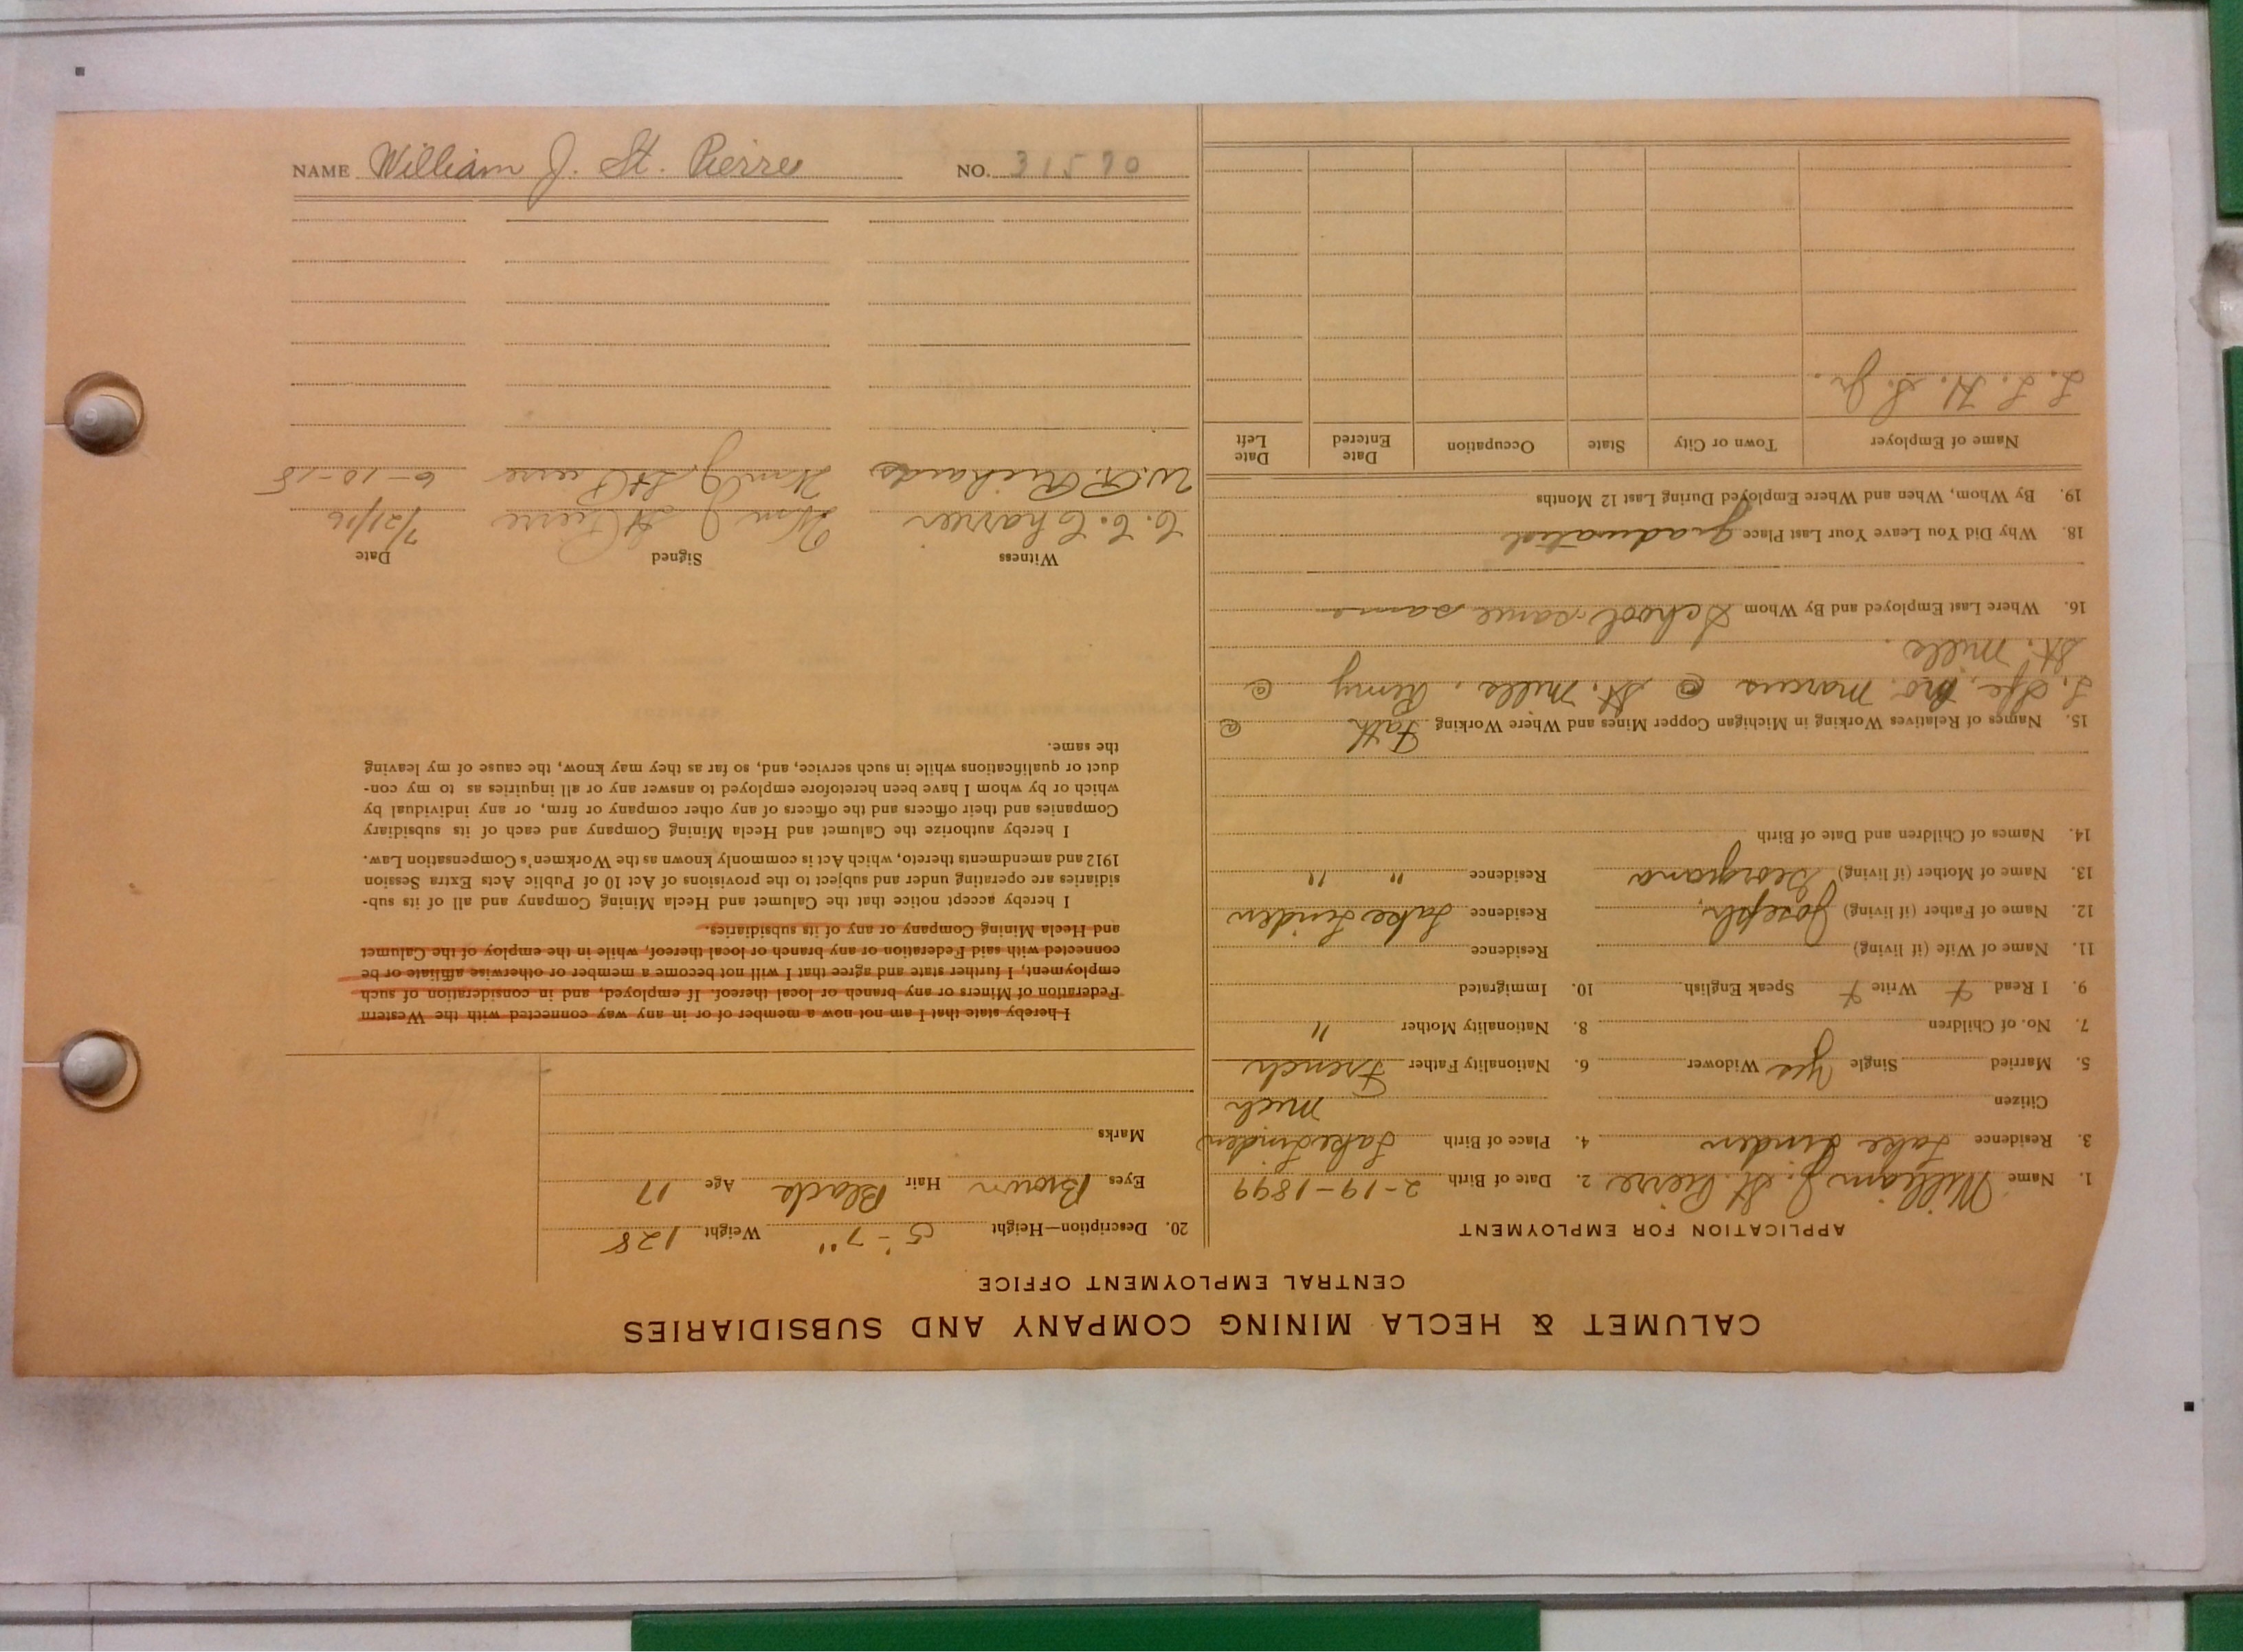 NAME William J. St. Pierre NO. 31570
CALUMET & HECLA MINING COMPANY AND SUBSIDIARIES
CENTRAL EMPLOYMENT OFFICE
APPLICATION FOR EMPLOYMENT
1. Name William J. St. Pierre 2. Date of Birth 2-19-1899
3. Residence Lake Linden 4. Place of Birth Lake Linden
Citizen Mich
5. Married Single Yes Widower 6. Nationality Father French
7. No. of Children 8. Nationality Mother "
9. I Read Write Speak English 10. Immigrated
11. Name of Wife (if living) Residence
12. Name of Father (if living) Joseph, Residence Lake Linden
13. Name of Mother (if living) Georgiana Residence " "
14. Names of Children and Date of Birth
15. Names of Relatives Working in Michigan Copper Mines and Where Working Fath @
Bro. Marcus @ St. Mills. Remy @
St. Mills.
16. Where Last Employed and By Whom School same same
18. Why Did You Leave Your Last Place graduated
19. By Whom, When and Where Employed During Last 12 Months
Name of Employer Town or City State Occupation Date Entered Date Left
L. L. H. S. Gr.
20. Description—Height 5'-7" Weight 128
Eyes Brown Hair Black Age 17
Marks
I hereby state that I am not now a member of or in any way connected with the Western
Federation of Miners or any branch or local thereof. If employed, and in consideration of such
employment, I further state and agree that I will not become a member or otherwise affiliate or be
connected with said Federation or any branch or local thereof, while in the employ of the Calumet
and Hecla Mining Company or any of its subsidiaries.
I hereby accept notice that the Calumet and Hecla Mining Company and all of its sub-
sidiaries are operating under and subject to the provisions of Act 10 of Public Acts Extra Session
1912 and amendments thereto, which Act is commonly known as the Workmen's Compensation Law.
I hereby authorize the Calumet and Hecla Mining Company and each of its subsidiary
Companies and their officers and the officers of any other company or firm, or any individual by
which or by whom I have been heretofore employed to answer any or all inquiries as to my con-
duct or qualifications while in such service, and, so far as they may know, the cause of my leaving
the same.
Witness Signed Date
C. C. Charrier Wm J St Pierre 7/21/16
W. F. Richards Wm J. St Pierre 6-10-18